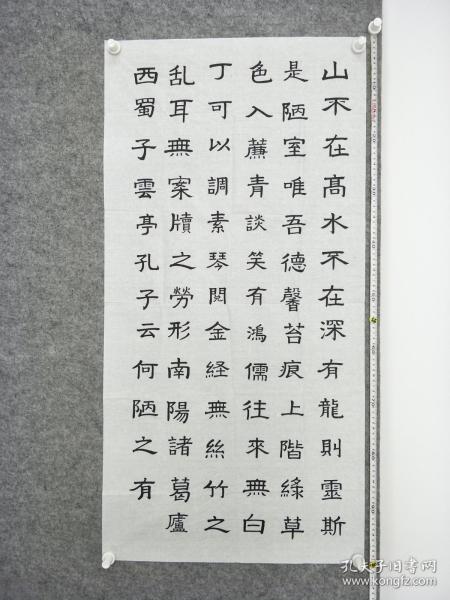 山不在髙水不在深有龍則靈斯
是陋室唯吾德馨苔痕上階綠草
色入薕青談笑有鴻儒往來無白
丁可以調素琴閱金経無絲竹之
乱耳無案牘之勞形南陽諸葛廬
西蜀子雲亭孔子云何陋之有
孔夫子旧书网
www.kongfz.com